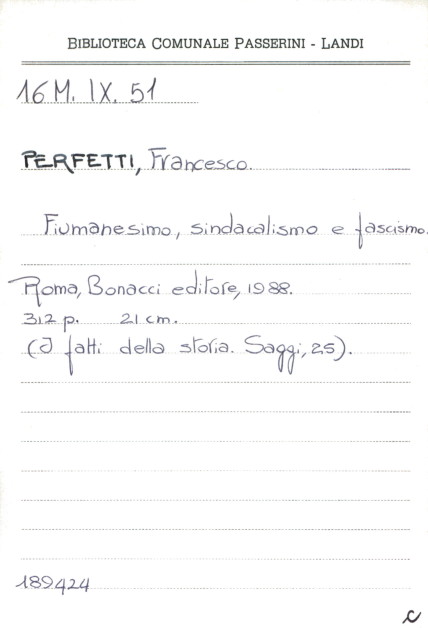 BIBLIOTECA COMUNALE PASSERINI - LANDI
16 M. IX. 51
PERFETTI, Francesco.
Fiumanesimo, sindacalismo e fascismo.
Roma, Bonacci editore, 1988.
312 p. 21 cm.
(I fatti della storia. Saggi, 25).
189424
c